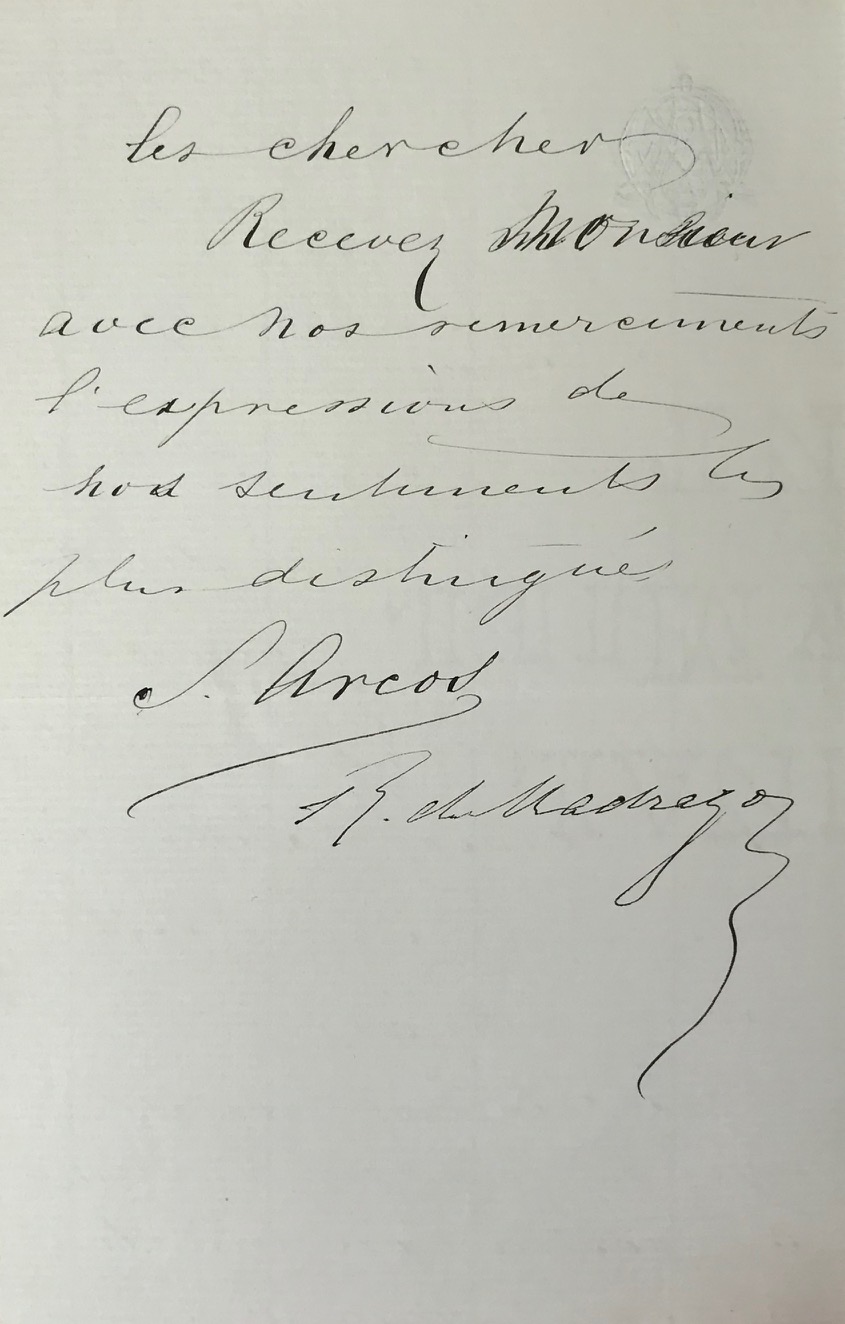 les chercher
Recevez Monsieur
avec nos remerciments
l'expressions de
nos sentiments les
plus distingués
S. Arcos
R. de Madrazo